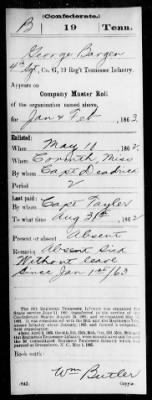 (Confederate.)
B 19 Tenn.
George Barger
4th Sgt, Co. G, 19 Reg't Tennessee Infantry.
Appears on
Company Muster Roll
of the organization named above,
for Jan & Feb, 1863.
Enlisted:
When May 10, 1862
Where Corinth, Miss
By whom Capt Deadrick
Period 2
Last paid:
By whom Capt Tayler
To what time Aug 31st, 1862
Present or absent Absent
Remarks: Absent Sick
Without leave
Since Jan 1st/63
Book mark:
Wm Butler
(642) Copyist.